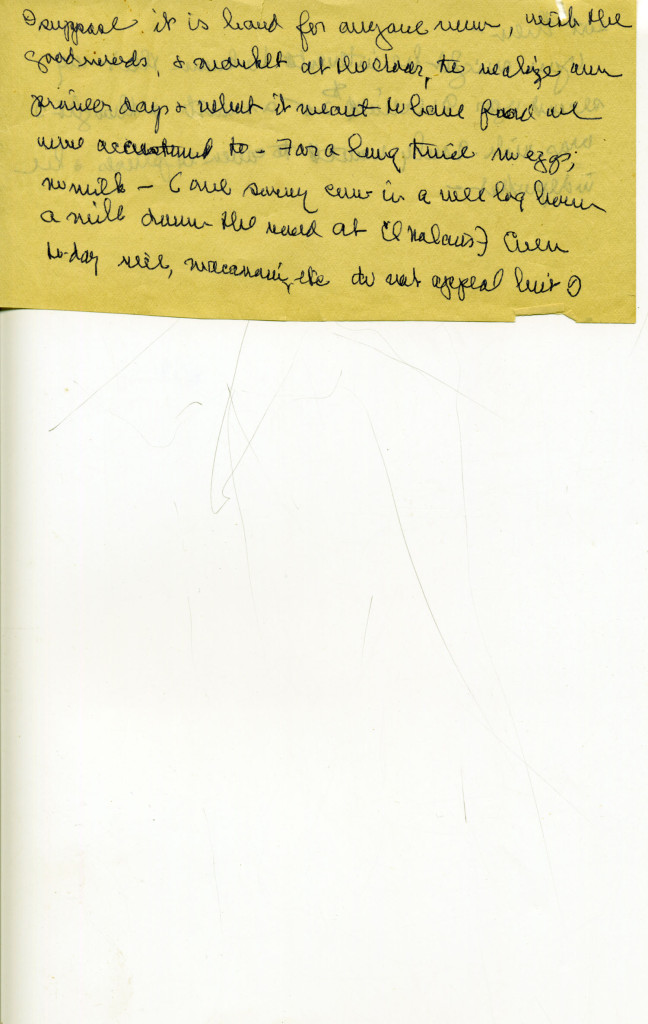 I suppose it is hard for anyone new, with the
good roads, & market at the door, to realize our
pioneer days & what it meant to have food we
were accustomed to - For a long time no eggs,
no milk - (one cow in a
a mile down the road at Even
to-day rice, macaroni, etc do not appeal but I